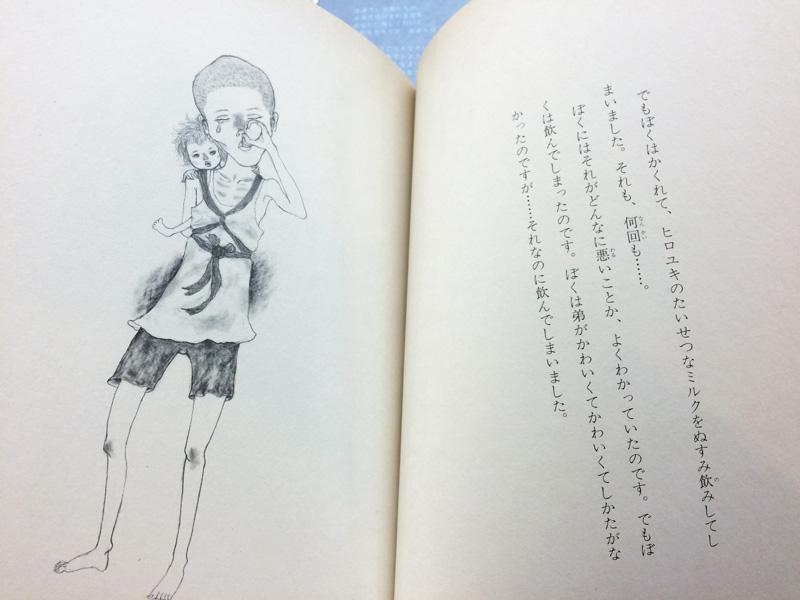 でもぼくはかくれて、ヒロユキのたいせつなミルクをぬすみ飲みしてし
まいました。それも、何回も……。
ぼくにはそれがどんなに悪いことか、よくわかっていたのです。でもぼ
くは飲んでしまったのです。ぼくは弟がかわいくてかわいくてしかたがな
かったのですが……それなのに飲んでしまいました。